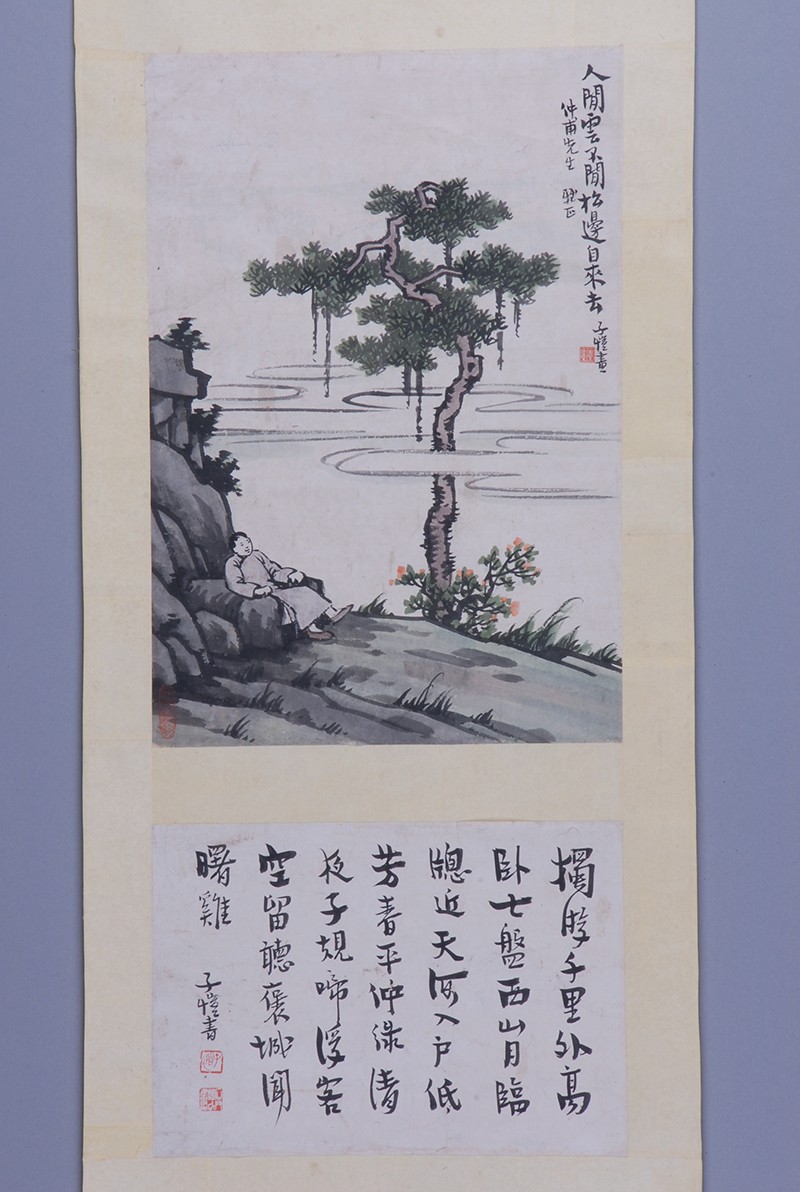 人閒雲不閒松邊自來去 子愷畫
仲甫先生 正
獨游千里外高
臥七盤西山月臨
牕近天河入戶低
芳春平仲綠清
夜子規啼浮客
空留聽褒城聞
曙雞 子愷書